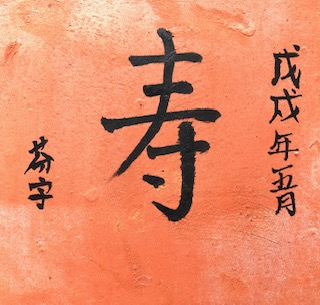 戊戌年五月
寿
芬字